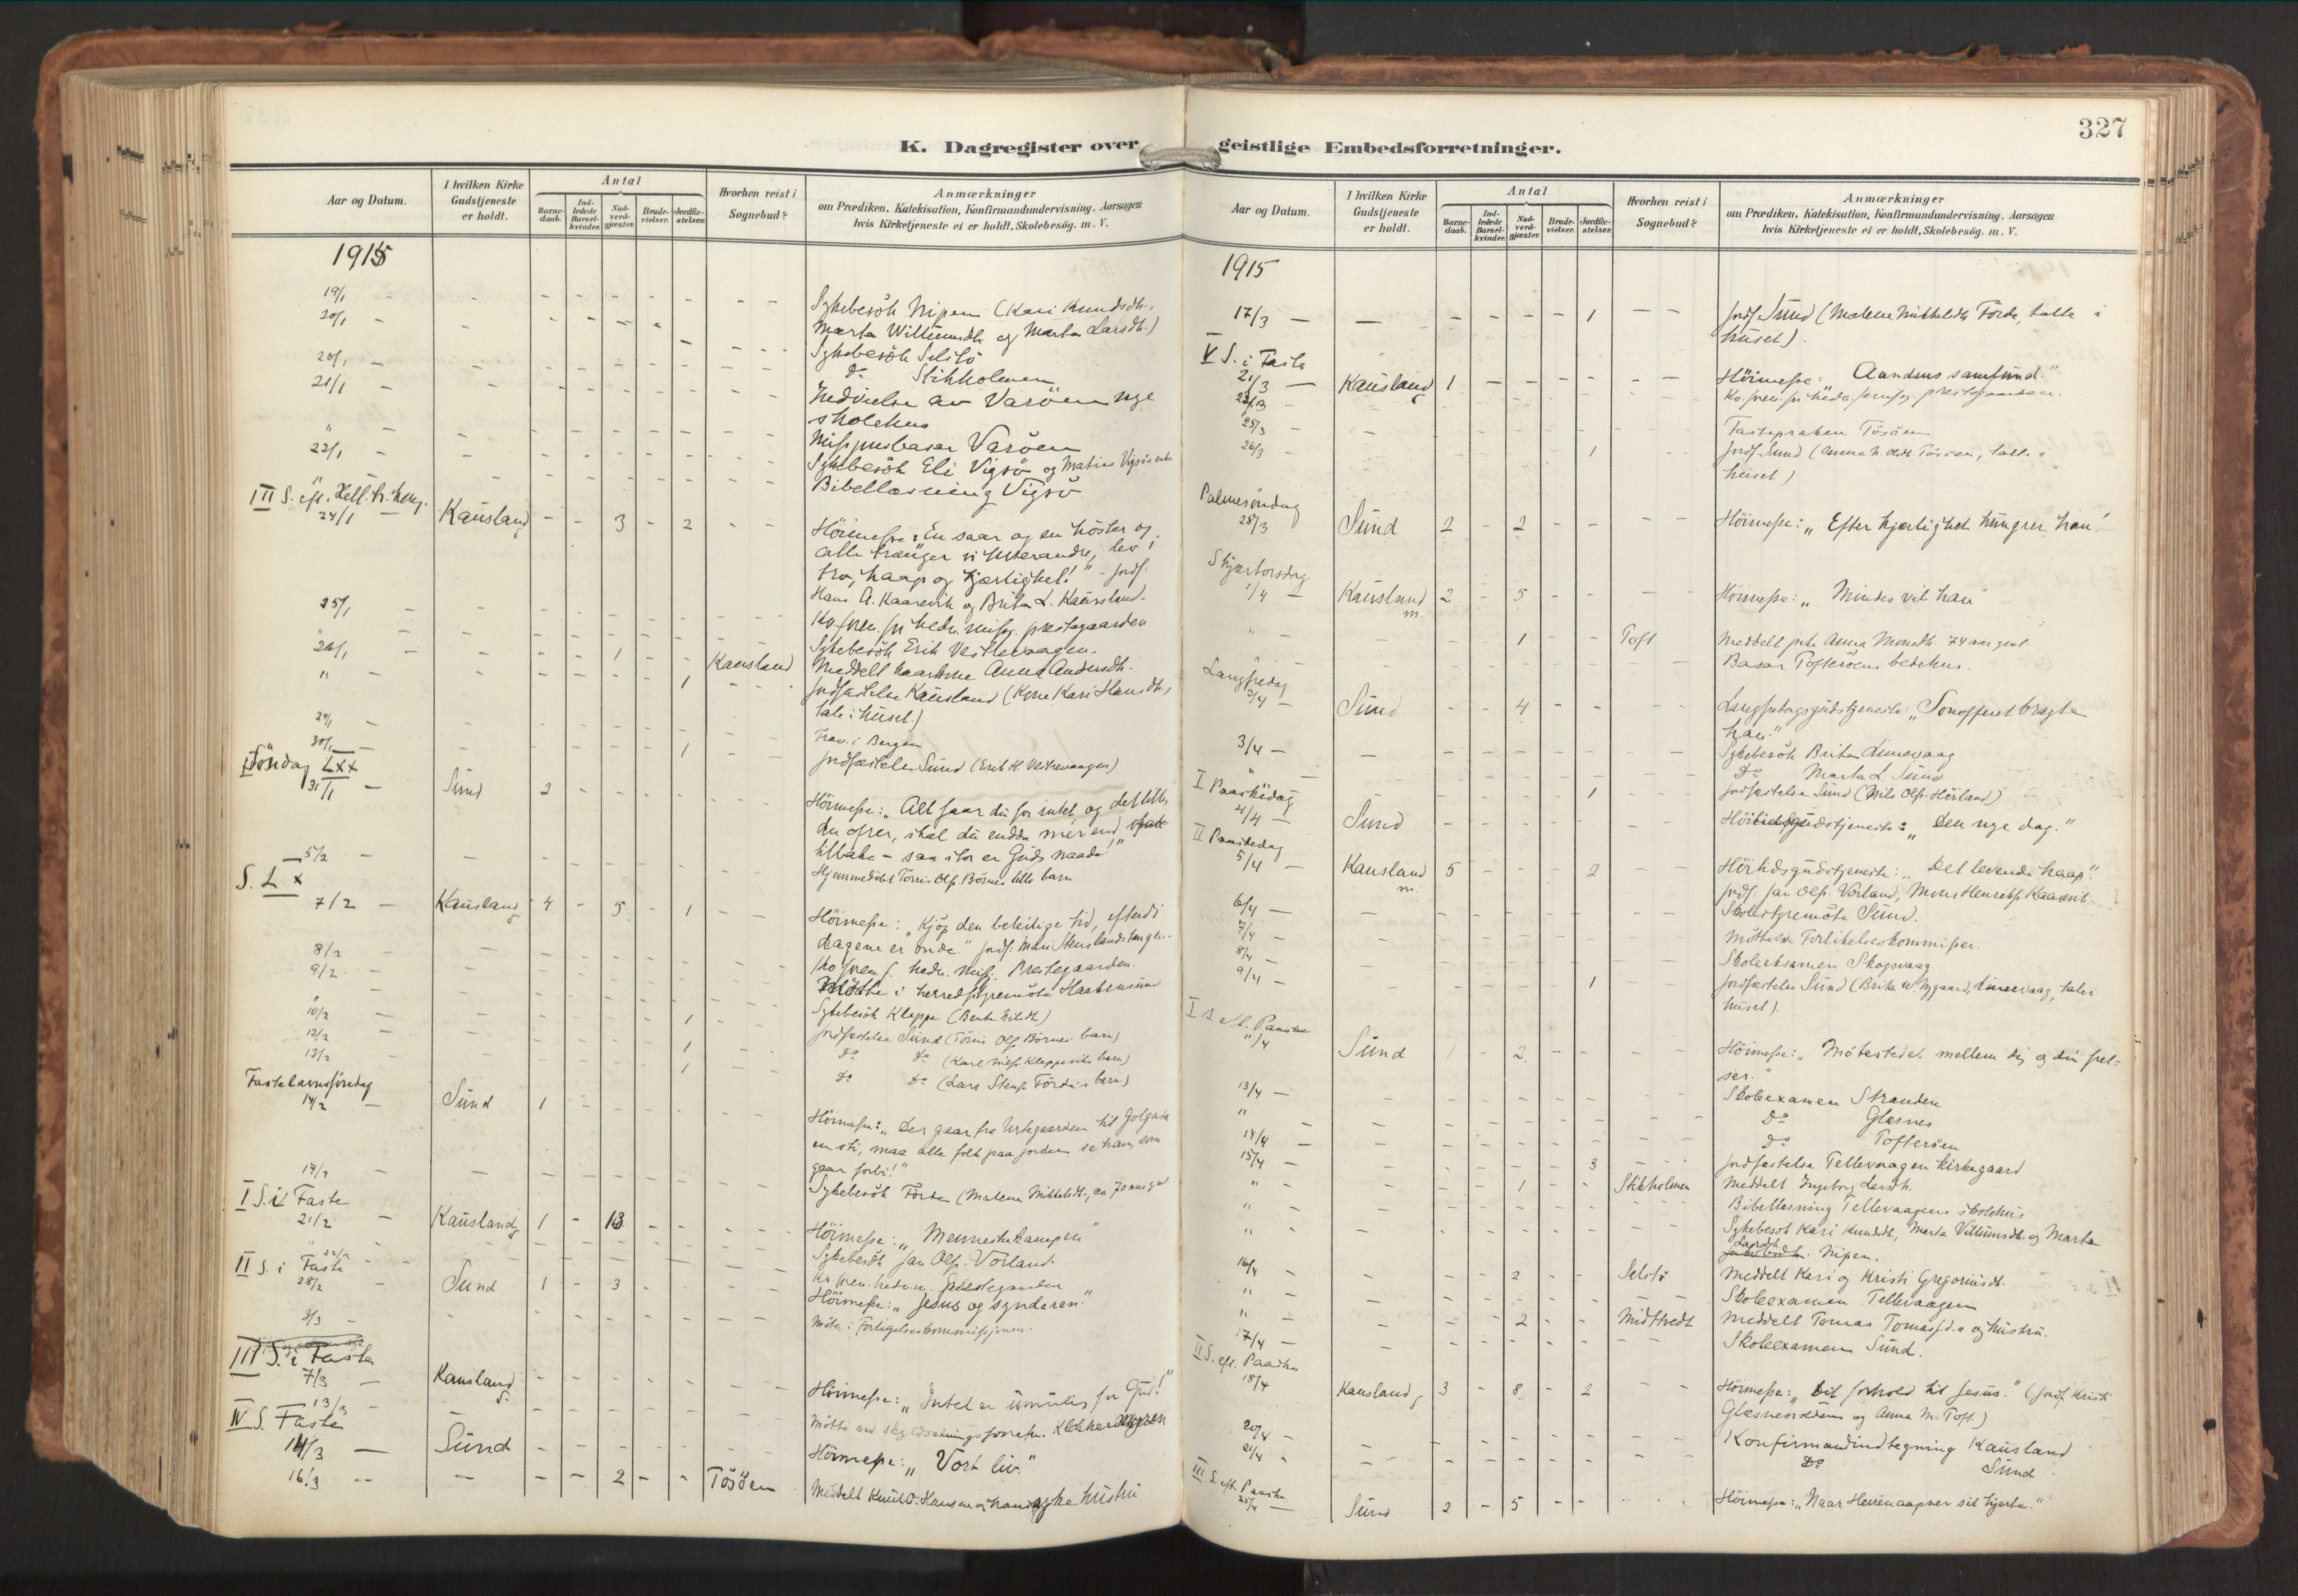 327
K. Dagregister over
Aar og Datum.
I hvilken Kirke Gudstjeneste er holdt.
Antal
Barne-daab.
Ind-ledede Barsel-kvinder.
Nad-verd-gjæster.
Brude-vielser.
Jordfæ-stelser.
Hvorhen reist i Sognebud?
Anmærkninger
om Prædiken, Katekisation, Konfirmandundervisning, Aarsagen
hvis Kirketjeneste ei er holdt, Skolebesög. m. V.
1915
19/1 - Sykebesök Nipen (Kari Knudsdtr.,
20/1 - Marta Willumsdtr. og Marta Larsdtr.)
20/1 - Sykebesök Selsö
21/1 - Do Stikholmen
Indvielse av Varöens nye
skolehus
" Missjonsbasar Varöen
22/1 - Sykebesök Eli Vigsö og Matias Vigsö
" Bibellæsning Vigsö
III S. eft. Hell. tr. kong.
24/1 Kausland - - 3 - 2 - - Höimesse: "En saar og en höster og
alle trænger vi hverandre, lev i
tro, haap og kjærlighet!" - Jordf.
Hans A. Kaarevik og Brita L. Kausland.
25/1 - Kv.foren. for hedn. miss. prestegaarden
" Sykebesök Erik Vestrevaagen.
26/1 - 1 Kausland Meddelt kaarkone Anna Andersdtr.
" 1 Jordfæstelse Kausland (Kone Kari Hansdtr.,
tale i huset.)
29/1 - Frav. i Bergen
30/1 - 1 Jordfæstelse Sund (Erik H. Vestrevaagen)
Söndag LXX
31/1 - Sund 2 Höimesse: "Alt faar du for intet, og det lille
du ofrer, skal du endda mer end
tilbake - saa stor er Guds naade!"
5/2 - Hjemmedöbt Tönis Ols. Börnes lille barn
S. LX
7/2 - Kausland 4 - 5 - 1 - - Höimesse: "Kjöp den beleilige tid, efterdi
dagene er onde." Jordf:
8/2 - Kv foren f. hedn. miss. Prestegaarden.
9/2 - Mötte i herredsstyremöte
" Sykebesök Kleppe
10/2 1 Jordfæstelse Sund (Tönis Ols Börnes barn)
12/2 1 Do Do (Karl Nils. Kleppevik barn)
13/2 1 Do Do (Lars Stens. Fördes barn)
Fastelavnssöndag
14/2 - Sund 1 Höimesse: "Der gaar fra Urtegaarden til Golgata
en sti, maa alle folk paa jorden se ham, som
gaar forbi!"
17/2 Sykebesök Förde (Malene Mikkelsdtr., ca 70 aar gl.
I S. i Faste
21/2 - Kausland 1 - 13 - - Höimesse: "Menneskekampen"
" Sykebesök Jan Ols. Vorland.
22/2 Kv foren. hedn. m. Prestegaarden
II S. i Faste
28/2 - Sund 1 - 3 Höimesse: "Jesus og synderen."
3/3 - Möte i Forligelseskommissjonen.
III S. i Faste
7/3 - Kausland Höimesse: "Intet er umulig for Gud!"
13/3 Mötte ved
IV S. Faste
14/3 - Sund Höimesse: "Vort liv."
16/3 - - - 2 - - Tösöen Meddelt Knut O. Hansen og hans syke hustru
geistlige Embedsforretninger.
Aar og Datum.
I hvilken Kirke Gudstjeneste er holdt.
Antal
Barne-daab.
Ind-ledede Barsel-kvinder.
Nad-verd-gjæster.
Brude-vielser.
Jordfæ-stelser.
Hvorhen reist i Sognebud?
Anmærkninger
om Prædiken, Katekisation, Konfirmandundervisning, Aarsagen
hvis Kirketjeneste ei er holdt, Skolebesög. m. V.
1915
17/3 - - - - - - 1 - - Jordf. Sund (Malene Mikkelsdtr. Förde, talte i
huset).
V S. i Faste
21/3 - Kausland 1 - - - - - - Höimesse: "Aandens samfund."
23/3 - Kv. foren. for hedn. miss. prestegaarden.
25/3 - Fastepræken Tösöen
26/3 - 1 Jordf. Sund (Anna Tösöen, talte i
huset)
Palmesöndag
28/3 Sund 2 - 2 - - - Höimesse: "Efter kjærlighet hungrer han!"
Skjærtorsdag
1/4 - Kausland 2 - 5 - - - Höimesse: "Mindes vil han"
m.
" - 1 - - Toft Meddelt Anna Monsdtr. 74 aar gml.
Basar Tofteröens bedehus.
Langfredag
2/4 - Sund - - 4 - - - - Langfredagsgudstjeneste: "Sonofferet bragte
han."
3/4 - - Sykebesök Brita Limevaag
" Do Marta L. Sund
1 Jordfæstelse Sund (Nils Ols. Hörland)
I Paaskedag
4/4 - Sund Höitidsgudstjeneste: "Den nye dag."
II Paaskedag
5/4 - Kausland 5 - - - 2 - - Höitidsgudstjeneste: "Det levende haap."
m. Jordf. Jan Ols. Vorland, Mons Henriks. Kaarevik.
6/4 - Skolestyremöte Sund.
7/4 - Mötte i Forlikelseskommissjon.
8/4 - Skoleeksamen Skogsvaag
9/4 - 1 Jordfæstelse Sund (Brita Nygaard, Limevaag, tale i
huset).
I S. eft. Paaske
11/4 Sund 1 - 2 - - - Höimesse: "Mötestedet mellem dig og din frel-
ser."
13/4 - Skoleexamen Stranden
" Do Glesnes
14/4 - Do Tofteröen
15/4 - 3 Jordfæstelse Tellevaagen kirkegaard
" 1 - - Stikholmen Meddelt Ingeborg Larsdtr.
" Bibellæsning Tellevaagens skolehus
" Sykebesök Kari Knudsdtr., Marta Villumsdtr. og Marta
Larsdtr. Nipen.
16/4 - 2 - - Selsö Meddelt Kari og Kristi Gregoriusdtr.
" Skoleexamen Tellevaagen
" 2 - - Midttvedt Meddelt Tomas Tomass. d.e. og hustru.
17/4 - Skoleexamen Sund.
II S. eft. Paaske
18/4 Kausland 3 - 8 - 2 Höimesse: "Dit forhold til Jesus." (Jordf. Kristi
Glæsnes og Anna M. Toft.)
20/4 - Konfirmandindtegning Kausland
21/4 Do Sund
III S. eft. Paaske
25/4 - Sund 2 - 5 - - Höimesse: "Naar Herren aapner sit hjerte."